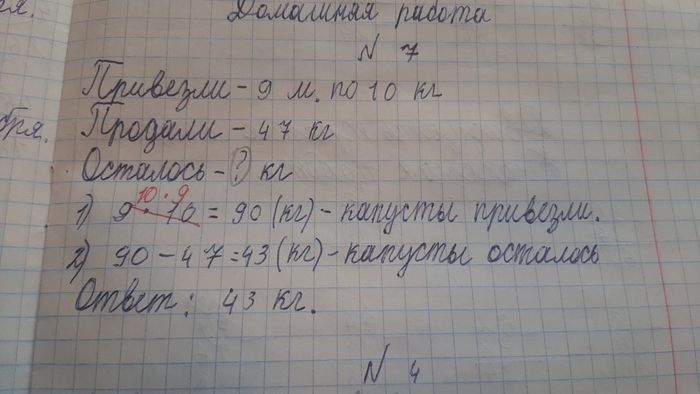 Домашняя работа
N 7
Привезли - 9 м. по 10 кг
Продали - 47 кг
бря.
Осталось - ? кг
10 · 9
1) 9 · 10 = 90 (кг) - капусты привезли.
2) 90 - 47 = 43 (кг) - капусты осталось
Ответ: 43 кг.
N 4